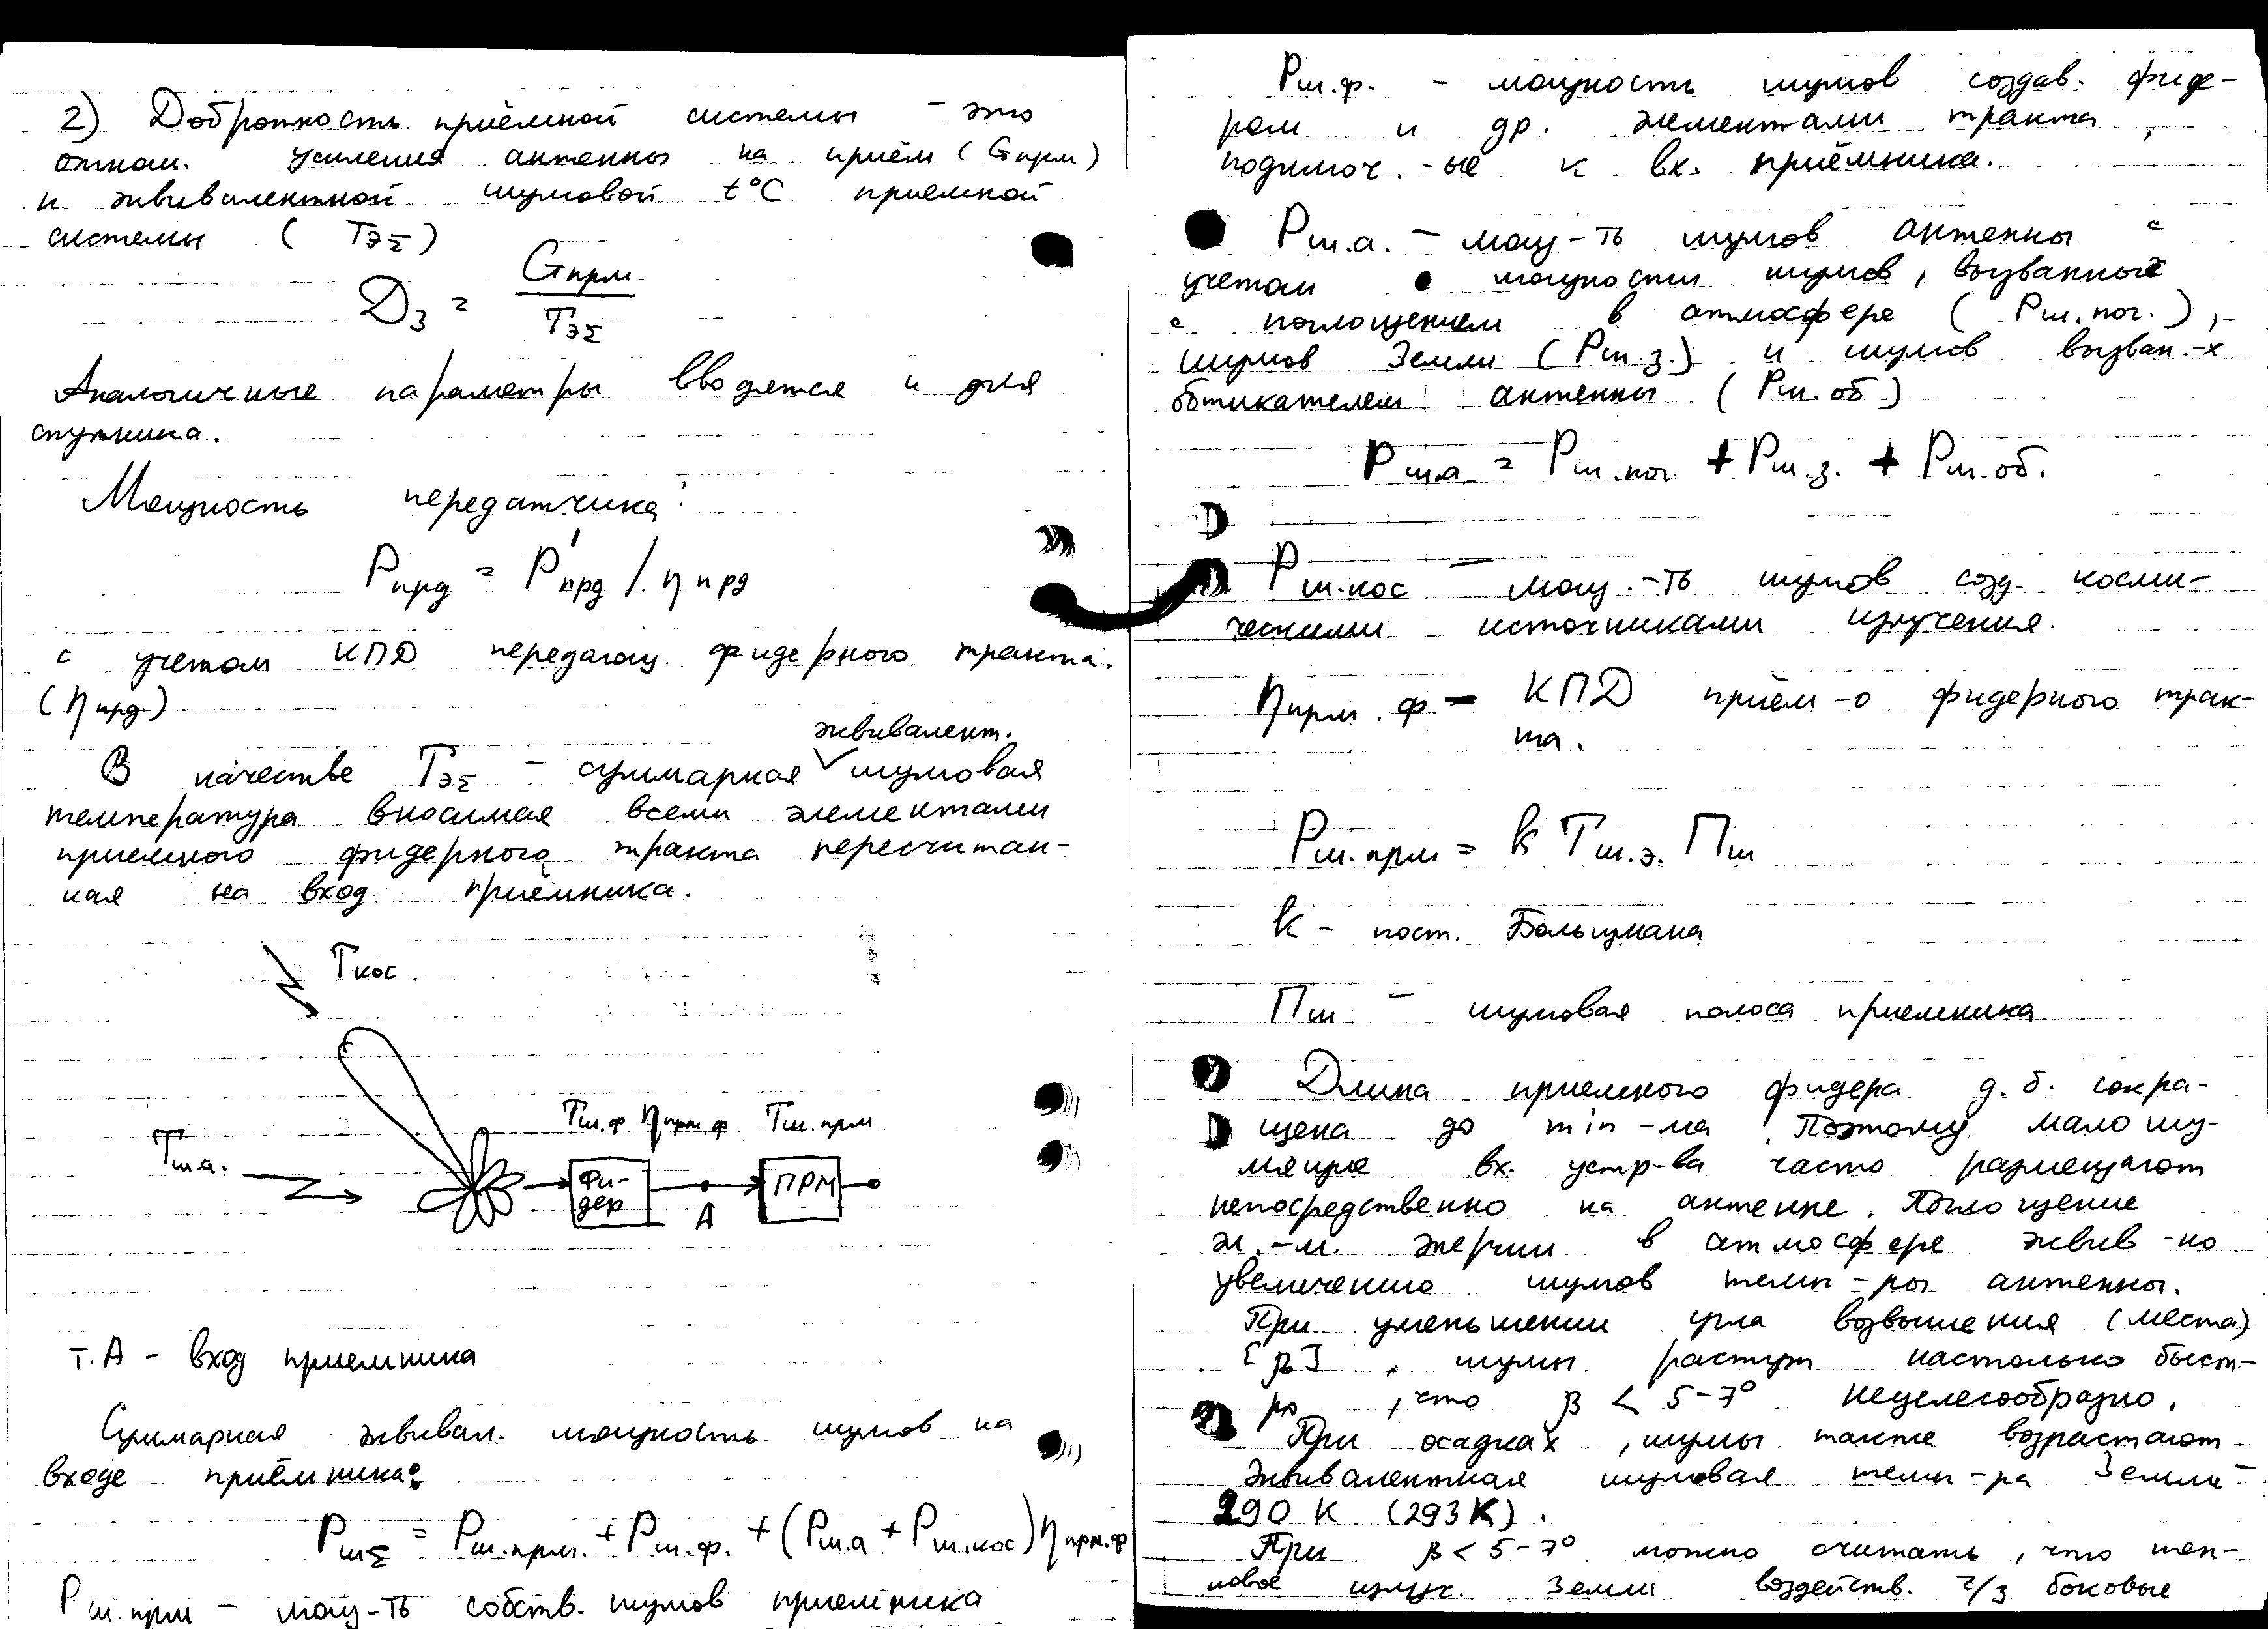 2) Добротность приёмной системы – это
отнош. усиления антенны на приём (Gпрм)
к эквивалентной шумовой t°C приемной
системы ( TэΣ )
Дз = Gпрм / TэΣ
Аналогичные параметры вводятся и для
спутника.
Мощность передатчика:
Pпрд = P'прд / ηпрд
с учетом КПД передающ. фидерного тракта.
(ηпрд)
эквивалент.
В качестве TэΣ – суммарная ✓ шумовая
температура вносимая всеми элементами
приемного фидерного тракта пересчитан-
ная на вход приёмника.
Tкос
Tш.ф ηпрм.ф Tш.прм
Tш.а.
Фи-
дер
A
ПРМ
т. А – вход приемника
Суммарная эквивал. мощность шумов на
входе приёмника:
PшΣ = Pш.прм. + Pш.ф. + (Pш.а + Pш.кос) ηпрм.ф
Pш.прм – мощ-ть собств. шумов приемника
Pш.ф. – мощность шумов создав. фиде-
ром и др. элементами тракта,
подключ.-ые к вх. приёмника.
Pш.а. – мощ-ть шумов антенны с
учетом мощности шумов, вызванных
с поглощением в атмосфере ( Pш.пог. ),
шумов Земли (Pш.з.) и шумов вызван.-х
обтикателем антенны ( Pш.об )
Pш.а = Pш.пог. + Pш.з. + Pш.об.
Pш.кос – мощ.-ть шумов созд. косми-
ческими источниками излучения.
ηпрм.ф – КПД приём-о фидерного трак-
та.
Pш.прм = k Tш.э. Пш
k – пост. Больцмана
Пш – шумовая полоса приемника
Длина приемного фидера д.б. сокра-
щена до min-ма. Поэтому мало шу-
мящие вх. устр-ва часто размещают
непосредственно на антенне. Поглощение
эл.-м. энергии в атмосфере эквив-но
увеличению шумов темп-ры антенны.
При уменьшении угла возвышения (места)
[β], шумы растут настолько быст-
ро, что β < 5-7° нецелесообразно.
При осадках, шумы также возрастают
Эквивалентная шумовая темп-ра Земли –
290 К (293К).
При β < 5-7° можно считать, что теп-
ловое излуч. Земли воздейств. ч/з боковые